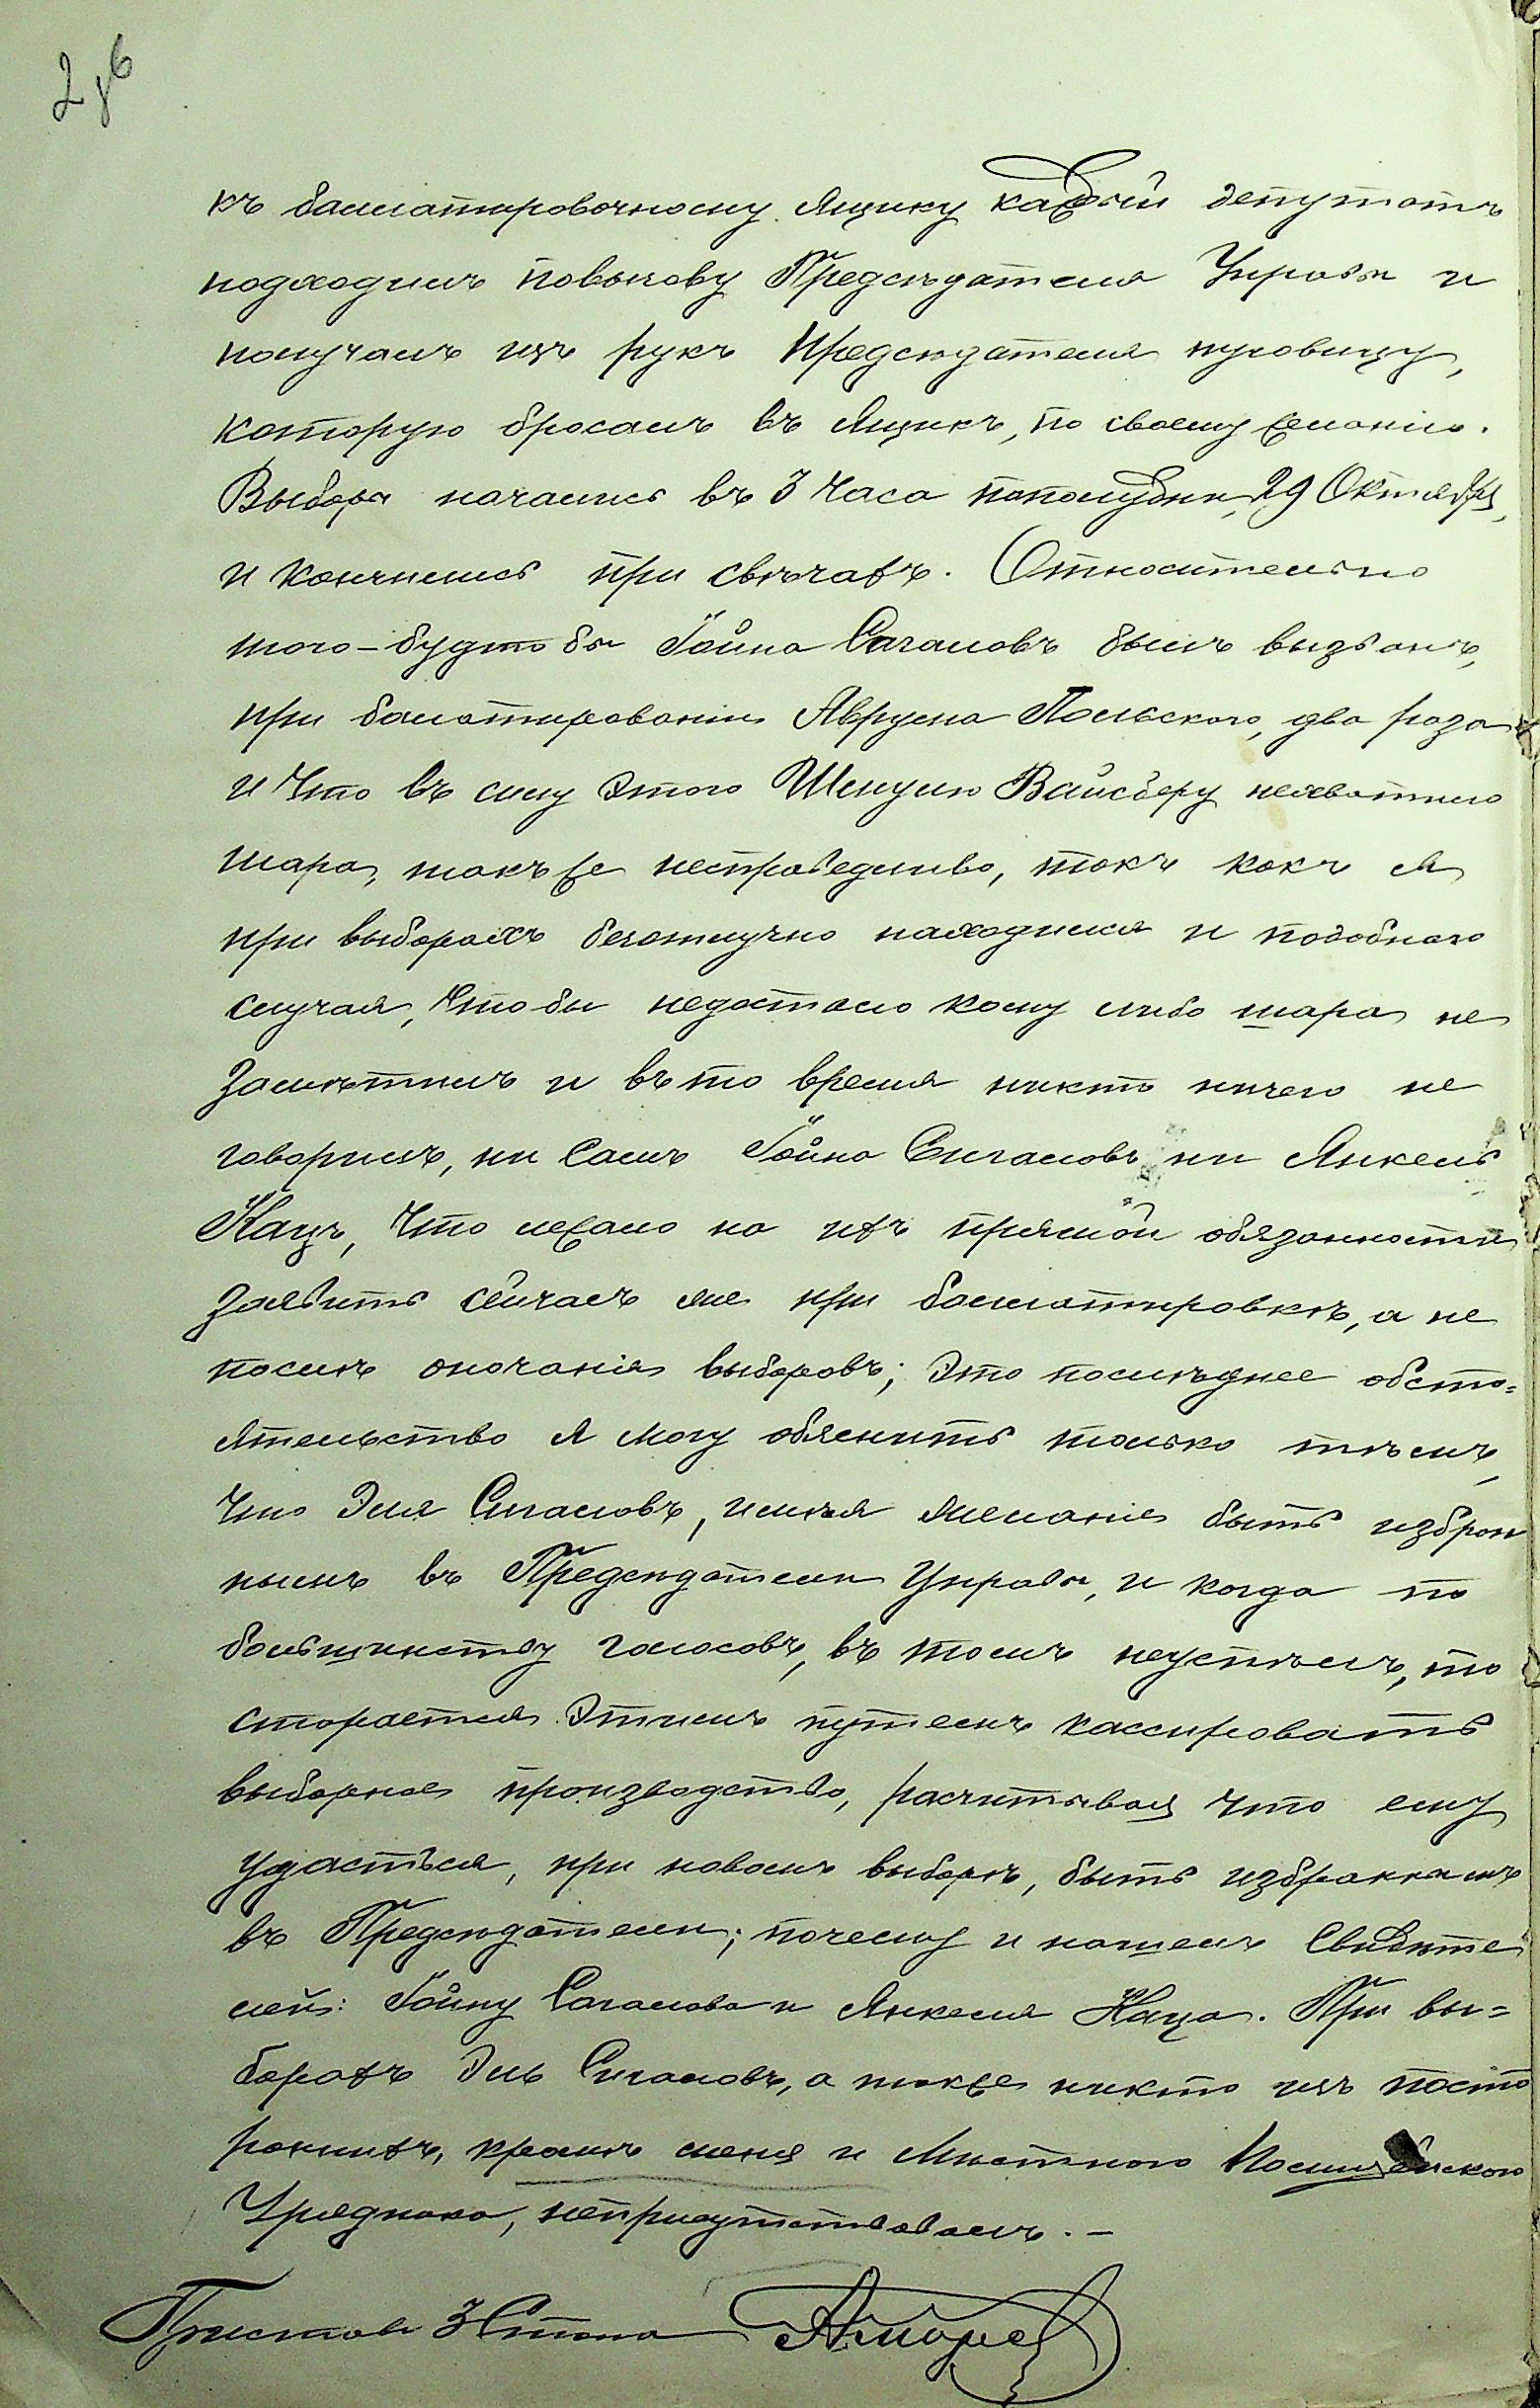 къ баллатировочному Ящику каждый депутатъ
подходилъ повызову Предсѣдателя Управы и
получалъ изъ рукъ Предсѣдателя пуговицу,
которую бросалъ въ Ящикъ, по своему желанію.
Выборы начались въ 3 часа пополудни, 29 Октября,
и кончились при свѣчахъ. Относительно
того-будто бы Гойна Сагаловъ былъ вызванъ,
при балатированіи Аврума Польскаго, два раза
и что въ силу этого Шлиуму Вайсберу нехватило
шара, также несправедливо, такъ какъ я
при выборахъ безотлучно находился и подобнаго
случая, чтобы недостало кому либо шара не
замѣтилъ и въ то время никто ничего не
говорилъ, ни самъ Гойна Сигаловъ ни Янкель
Кацъ, что лежало на ихъ прямой обязанности
заявить сейчасъ же при баллатировкѣ, а не
послѣ окочанія выборовъ; это послѣднее обсто-
ятельство я могу обяснить только тѣмъ,
что Эля Сигаловъ, имѣя желаніе быть избран
нымъ въ Предсѣдатели Управы, и когда по
большинству голосовъ, въ томъ неуспѣлъ, то
старается этимъ путемъ кассировать
выборное производство, расчитывая что ему
удасться, при новомъ выборѣ, быть избраннымъ
въ Предсѣдатели; почему и нашелъ Свидѣте
лей: Гойну Сагалова и Янкеля Каца. При вы-
борахъ Эль Сигаловъ, а также никто изъ посто
роннихъ, кромѣ меня и Мѣстнаго Полицейскаго
Урядника, неприсутствовалъ. –
Приставъ 3 Стана